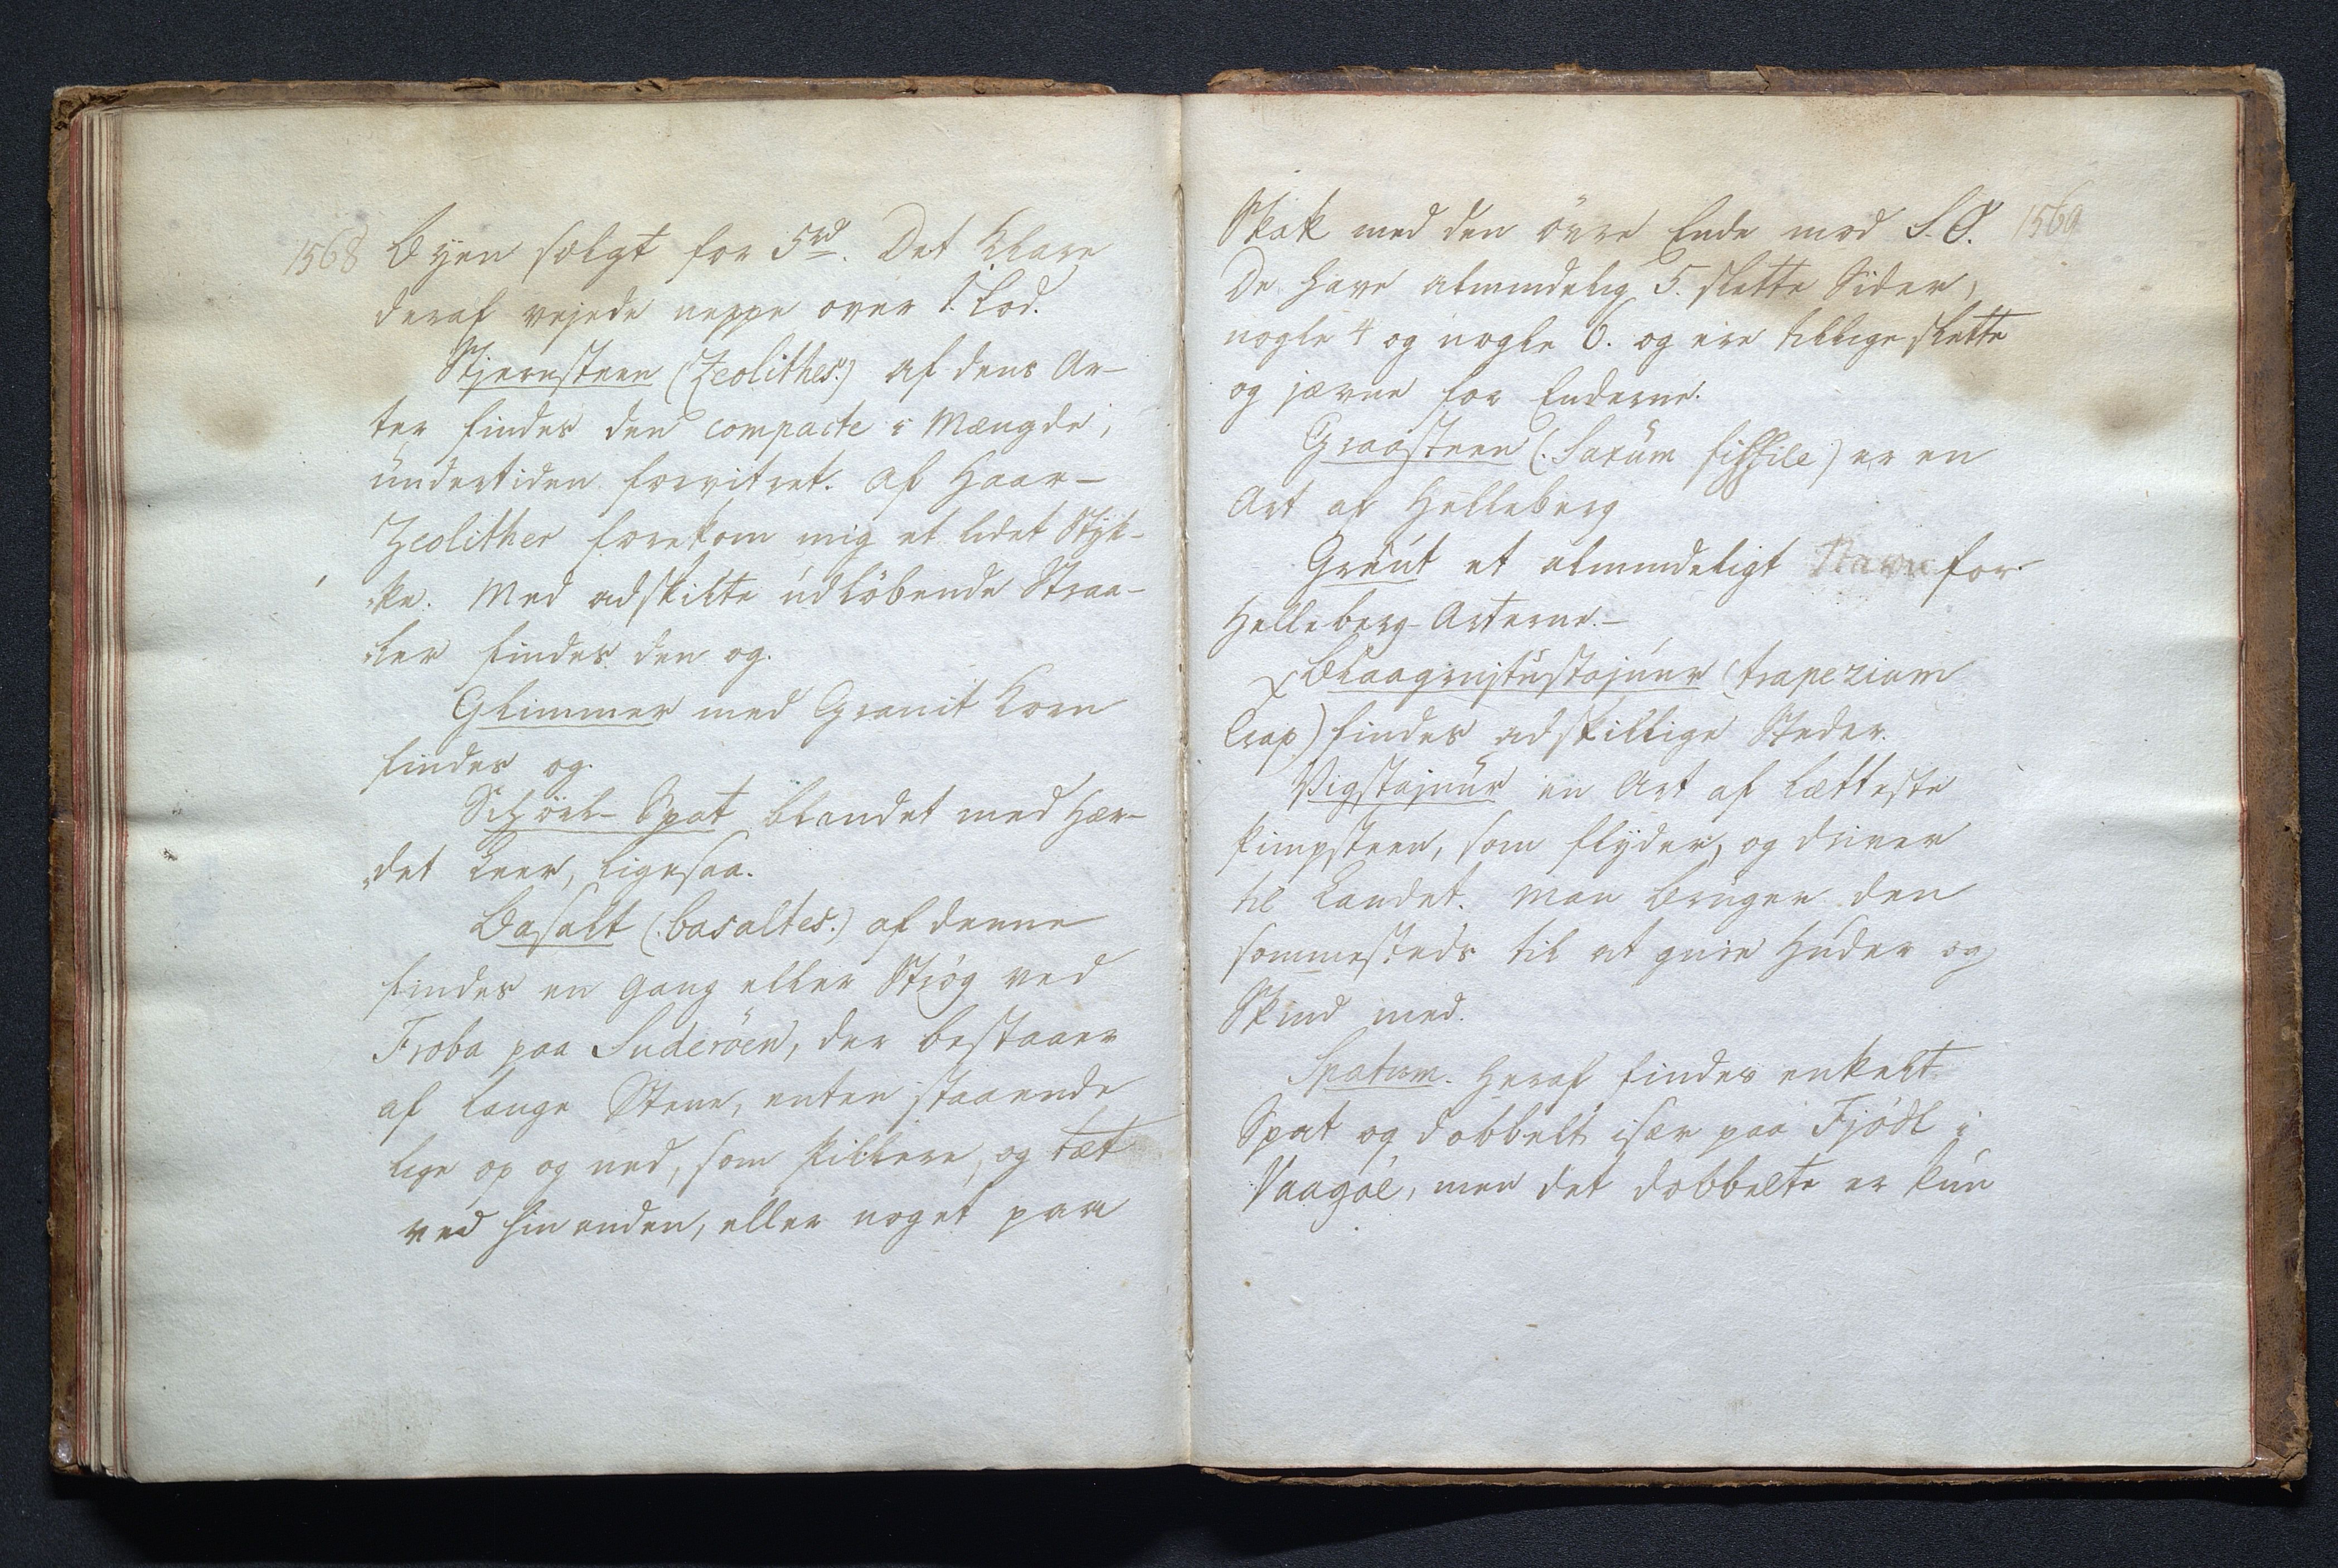 1568 Byen solgt for 5 rd. Det Klare
deraf vejede neppe over 1. Lod.
Stjernsteen (Zeolithes.) af dens Ar-
ter findes den compacte i Mængde,
undertiden forvitret. Af Haar-
Zeolither forekom mig et lidet Styk-
ke. Med adskilte udløbende Straa-
ler findes den og.
Glimmer med Granit Korn
findes og.
Schörl-Spat blandet med hær-
det Leer, ligesaa.
Basalt (.basaltes.) af denne
findes en Gang eller Strøg ved
Froba paa Suderøen, der bestaaer
af lange Stene, enten staaende
lige op og ned, som Pillere, og tæt
ved hinanden, eller noget paa
Skak med den øvre Ende mod S.O. 1569
De have almindelig 5. slette Sider,
nogle 4 og nogle 6. og ere tillige slette
og jævne for Enderne.
Graasteen (.Saxum fissile) er en
Art af Helleberg
Greut et almindeligt Navn for
Helleberg-Arterne.-
Blaagrujtustajnur (trapezium
Crap) findes adskillige Steder.
Vigstajnur en Art af letteste
Pimpsteen, som flyder, og driver
til Landet. Man bruger den
sommesteds til at gnie Huder og
Skind med.
Spatum. Heraf findes enkelt
Spat og dobbelt især paa Fjødl i
Vaagøe, men det dobbelte er kun